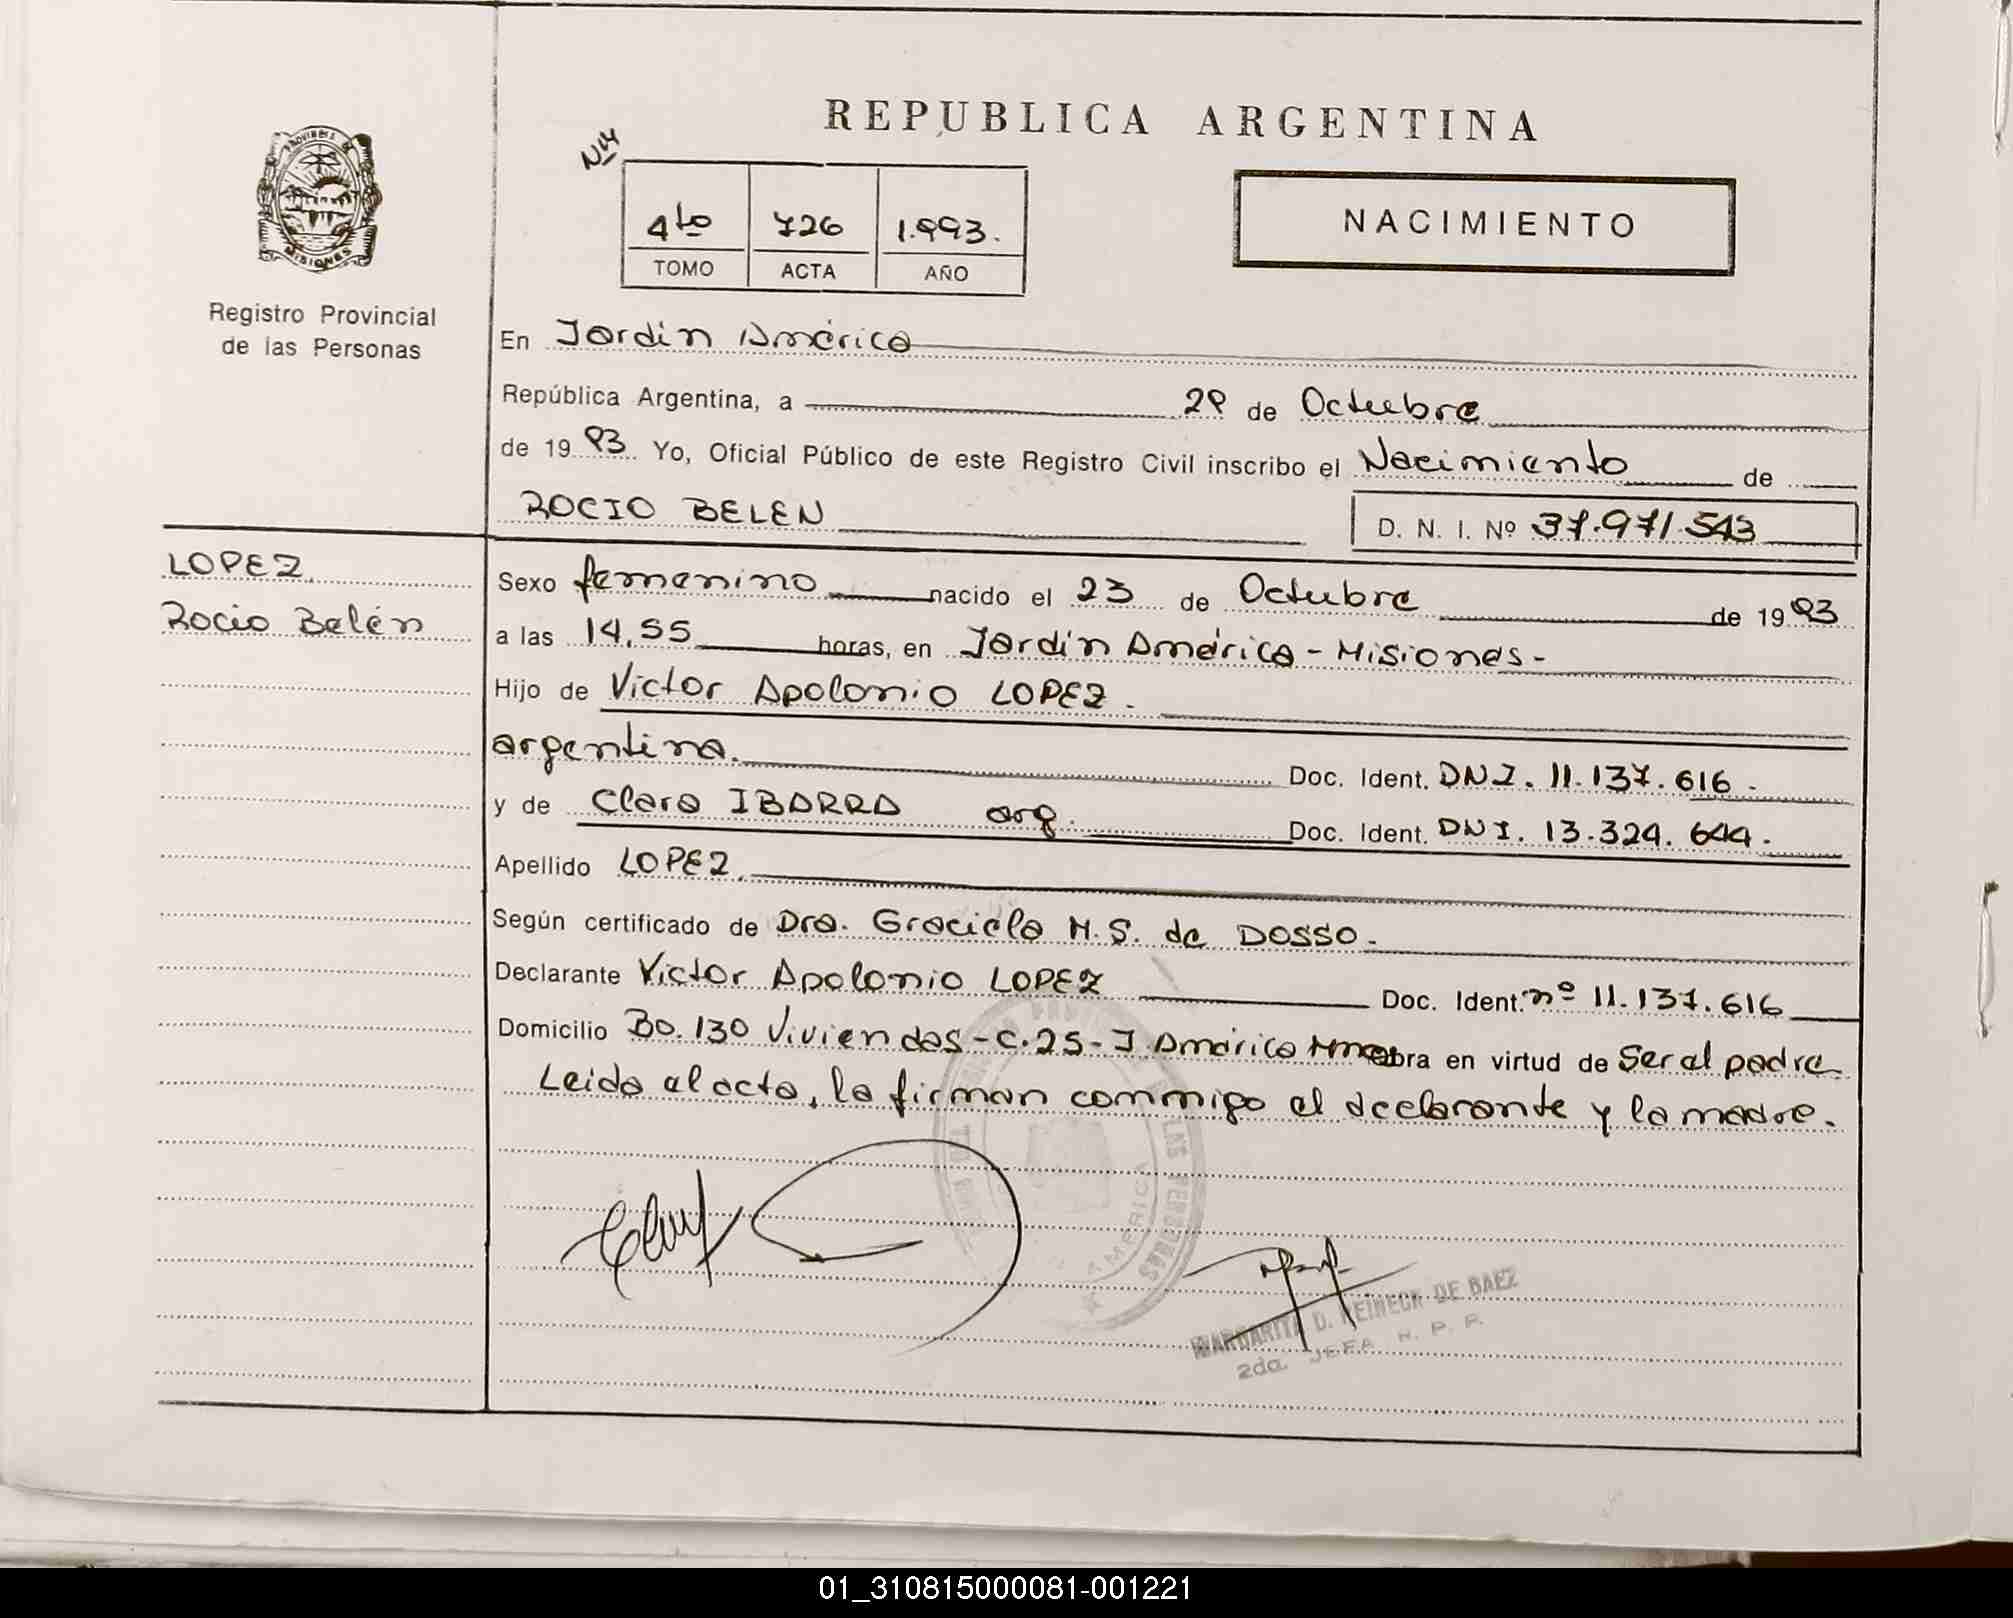 REPUBLICA ARGENTINA
Nº4
4to 726 1.993.
TOMO ACTA AÑO
NACIMIENTO
PROVINCIA DE
MISIONES
Registro Provincial
de las Personas
En Jardin América
República Argentina, a 29 de Octubre
de 1993 Yo, Oficial Público de este Registro Civil inscribo el Nacimiento de
ROCIO BELEN D. N. I. Nº 37.971.543
LOPEZ
Rocio Belén
Sexo femenino nacido el 23 de Octubre de 1993
a las 14,55 horas, en Jardin América - Misiones -
Hijo de Victor Apolonio LOPEZ.
argentina. Doc. Ident. DNI. 11.137.616.
y de Clara IBARRA arg. Doc. Ident. DNI. 13.324.644.
Apellido LOPEZ.
Según certificado de Dra. Graciela M.S. de DOSSO.
Declarante Victor Apolonio LOPEZ Doc. Ident. nº 11.137.616
Domicilio Bo. 130 Viviendas - C.25 - J. América Mnes obra en virtud de Ser el padre
Leida el acta, la firman conmigo el declarante y la madre.
LAS PERSONAS
AMERICA
MARGARITA D. REINECK DE BAEZ
2da. JEFA R. P. P.
01_310815000081-001221